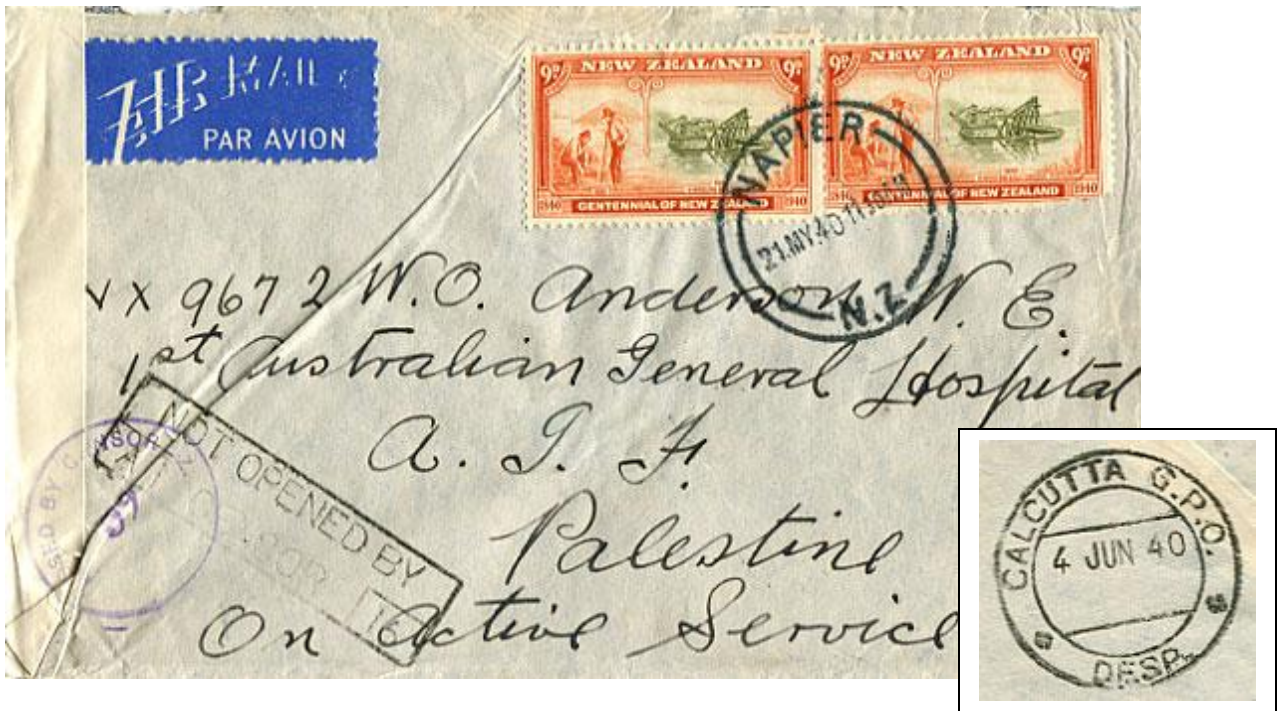 AIR MAIL
PAR AVION
9D NEW ZEALAND 9D
1840 CENTENNIAL OF NEW ZEALAND 1940
9D NEW ZEALAND 9D
1840 CENTENNIAL OF NEW ZEALAND 1940
NAPIER
21.MY.40
N.Z
VX 9672 W.O. Anderson W. E.
1st Australian General Hospital
A. I. F.
Palestine
On Active Service
NOT OPENED BY
39
CALCUTTA G.P.O.
4 JUN 40
DESP.